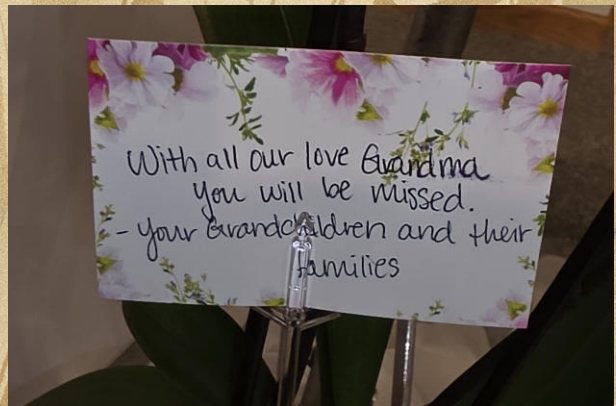 With all our love Grandma
you will be missed.
- your Grandchildren and their
families